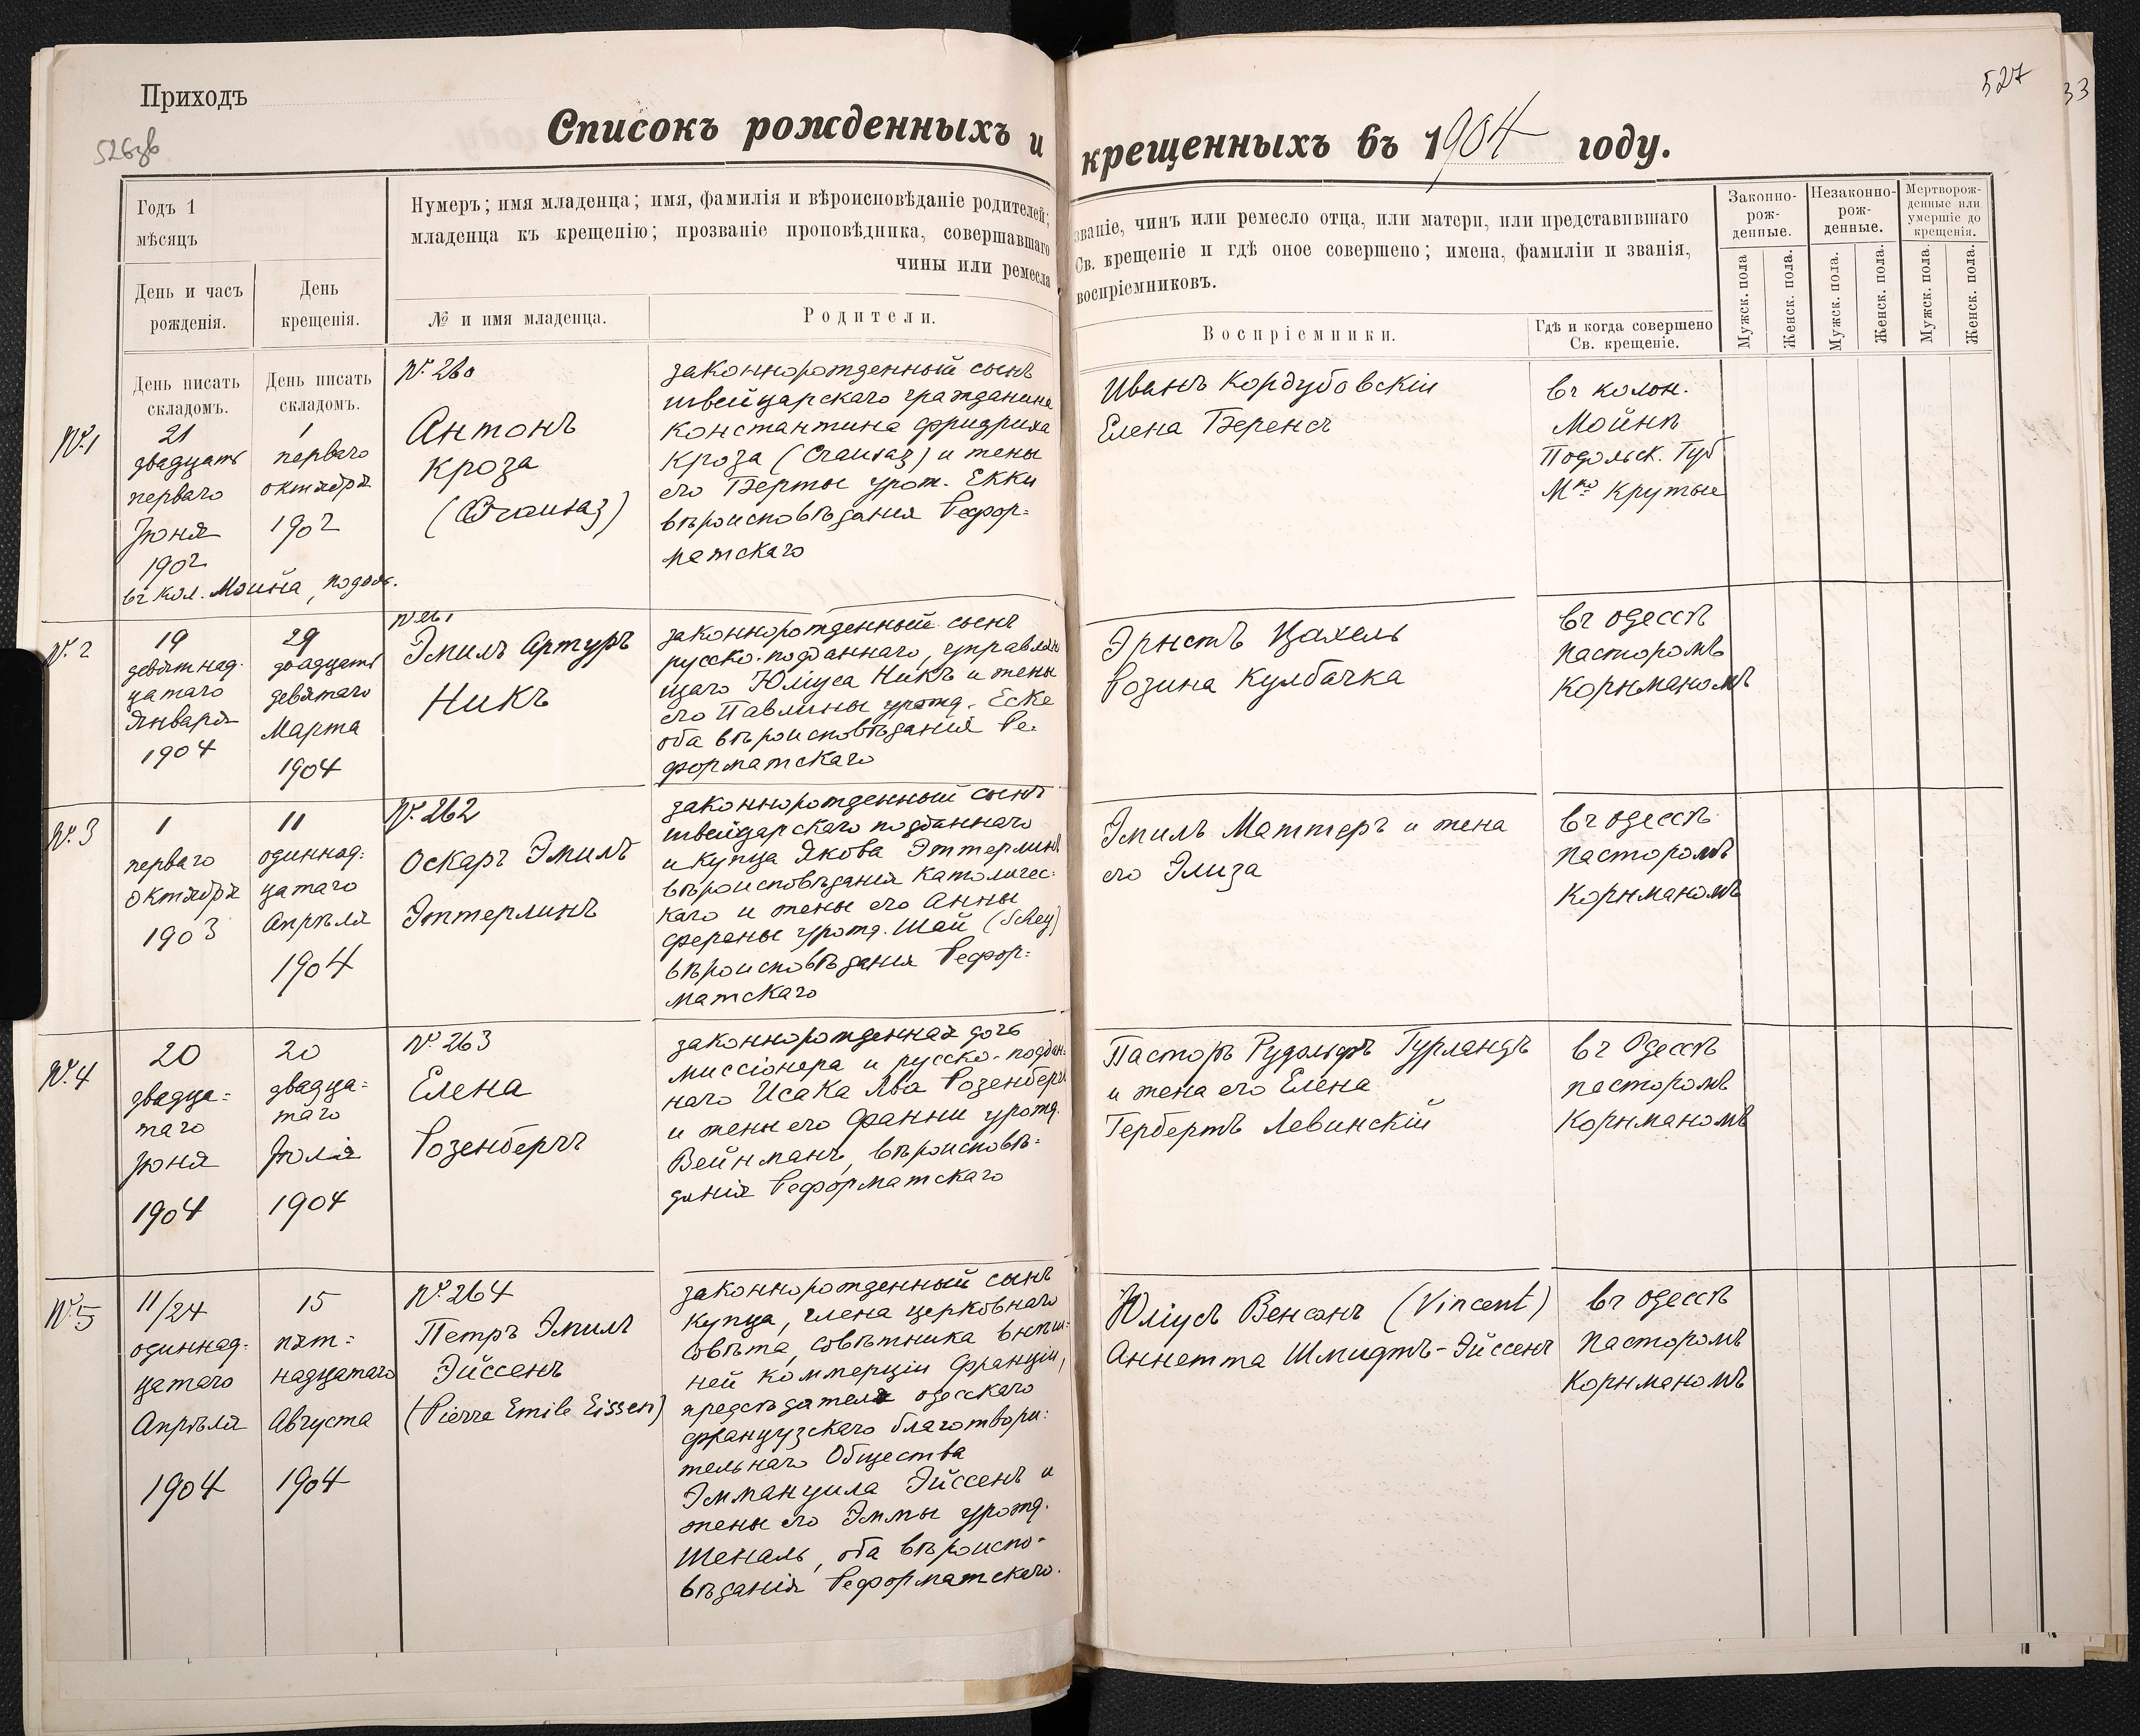 Приходъ
526зв
527
33
Списокъ рожденныхъ и крещенныхъ въ 1904 году.
Годъ 1
мѣсяцъ
День и часъ
рожденія.
День
крещенія.
Нумеръ; имя младенца; имя, фамилія и вѣроисповѣданіе родителей;
младенца къ крещенію; прозваніе проповѣдника, совершавшаго
чины или ремесла
№ и имя младенца.
Родители.
званіе, чинъ или ремесло отца, или матери, или представившаго
Св. крещеніе и гдѣ оное совершено; имена, фамиліи и званія,
воспріемниковъ.
Воспріемники.
Гдѣ и когда совершено
Св. крещеніе.
Законно-
рож-
денные.
Незаконно-
рож-
денные.
Мертворож-
денные или
умершіе до
крещенія.
Мужск. пола
Женск. пола.
Мужск. пола.
Женск. пола.
Мужск. пола.
Женск. пола.
День писать
складомъ.
День писать
складомъ.
№.1
21
двадцать
перваго
Іюня
1902
въ кол. Мойна, подол.
1
перваго
октября
1902
№ 260
Антонъ
Кроза
(Crausaz)
законнорожденный сынъ
швейцарскаго гражданина
Константина Фридриха
Кроза (Crausaz) и жены
его Берты урож. Екки
вѣроисповѣданія Рефор-
матскаго
Иванъ Кордубовскій
Елена Беренсъ
въ колон.
Мойнѣ
Подольск. Губ
Мко Крутые
№.2
19
девятнад.
цатаго
Января
1904
29
двадцать
девятаго
Марта
1904
№ 261
Эмиль Артуръ
Никъ
законнорожденный сынъ
русско-подданнаго, управляю
щаго Юліуса Никъ и жены
его Павлины урожд. Еске
оба вѣроисповѣданія Ре-
форматскаго
Эрнстъ Цахель
Розина Кулбачка
въ одессѣ
пасторомъ
Корнманомъ
№.3
1
перваго
октября
1903
11
одиннад-
цатаго
Апрѣля
1904
№.262
Оскаръ Эмиль
Эттерлинъ
законнорожденный сынъ
швейцарскаго подданнаго
и купца Якова Эттерлинъ
вѣроисповѣданія католичес-
каго и жены его Анны
Ферены урожд. Шай (Schey)
вѣроисповѣданія Рефор-
матскаго
Эмиль Маттеръ и жена
его Элиза
въ одессѣ
пасторомъ
Корнманомъ
№.4
20
двадца-
таго
Іюня
1904
20
двадца-
таго
Іюля
1904
№ 263
Елена
Розенбергъ
законнорожденная дочь
миссіонера и русско-поддан-
наго Исака Льва Розенбергъ
и жены его Фанни урожд.
Вейнманъ, вѣроисповѣ-
данія Реформатскаго
Пасторъ Рудольфъ Гурландъ
и жена его Елена
Гербертъ Левинскій
въ Одессѣ
пасторомъ
Корнманомъ
№.5
11/24
одиннад-
цатаго
Апрѣля
1904
15
пят-
надцатаго
Августа
1904
№ 264
Петръ Эмиль
Эйссенъ
(Pierre Emile Eissen)
законнорожденный сынъ
купца, члена церковнаго
совѣта, совѣтника внѣш-
ней коммерціи Франціи,
предсѣдателя одесскаго
французскаго благотвори-
тельнаго Общества
Эммануила Эйссенъ и
жены его Эммы урожд.
Шеналь, оба вѣроиспо-
вѣданія Реформатскаго.
Юліусъ Венсанъ (Vincent)
Аннетта Шмидтъ-Эйссенъ
въ одессѣ
Пасторомъ
Корнманомъ